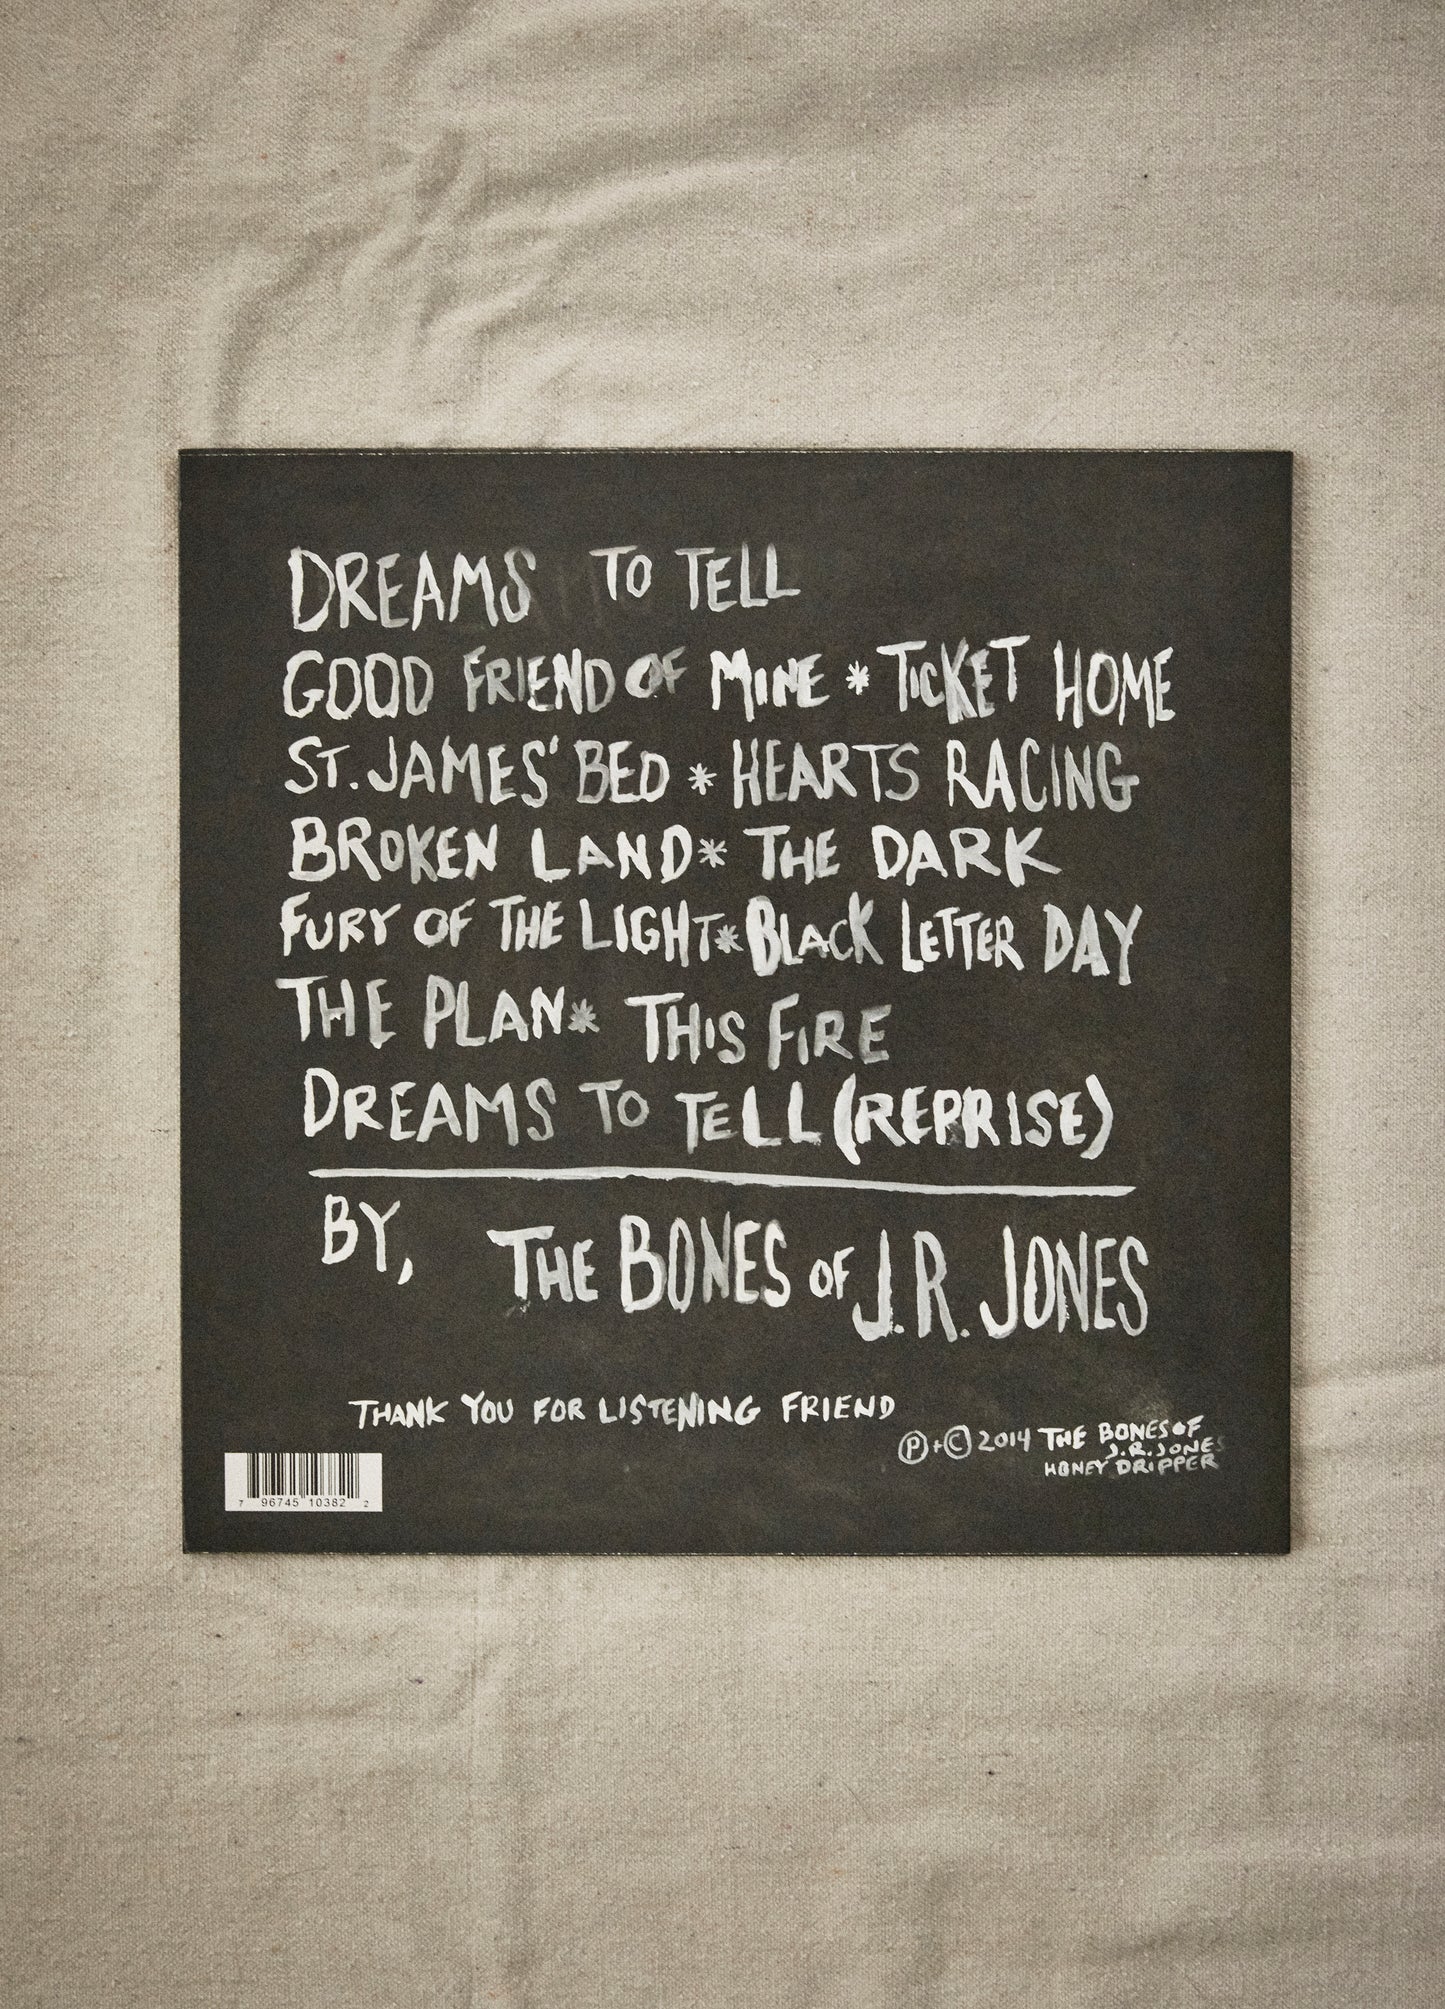 DREAMS TO TELL
GOOD FRIEND OF MINE * TICKET HOME
ST. JAMES' BED * HEARTS RACING
BROKEN LAND * THE DARK
FURY OF THE LIGHT * BLACK LETTER DAY
THE PLAN * THIS FIRE
DREAMS TO TELL (REPRISE)
BY, THE BONES OF J.R. JONES
THANK YOU FOR LISTENING FRIEND
Ⓟ+© 2014 THE BONES OF
J.R. JONES
HONEY DRIPPER
7 96745 10382 2